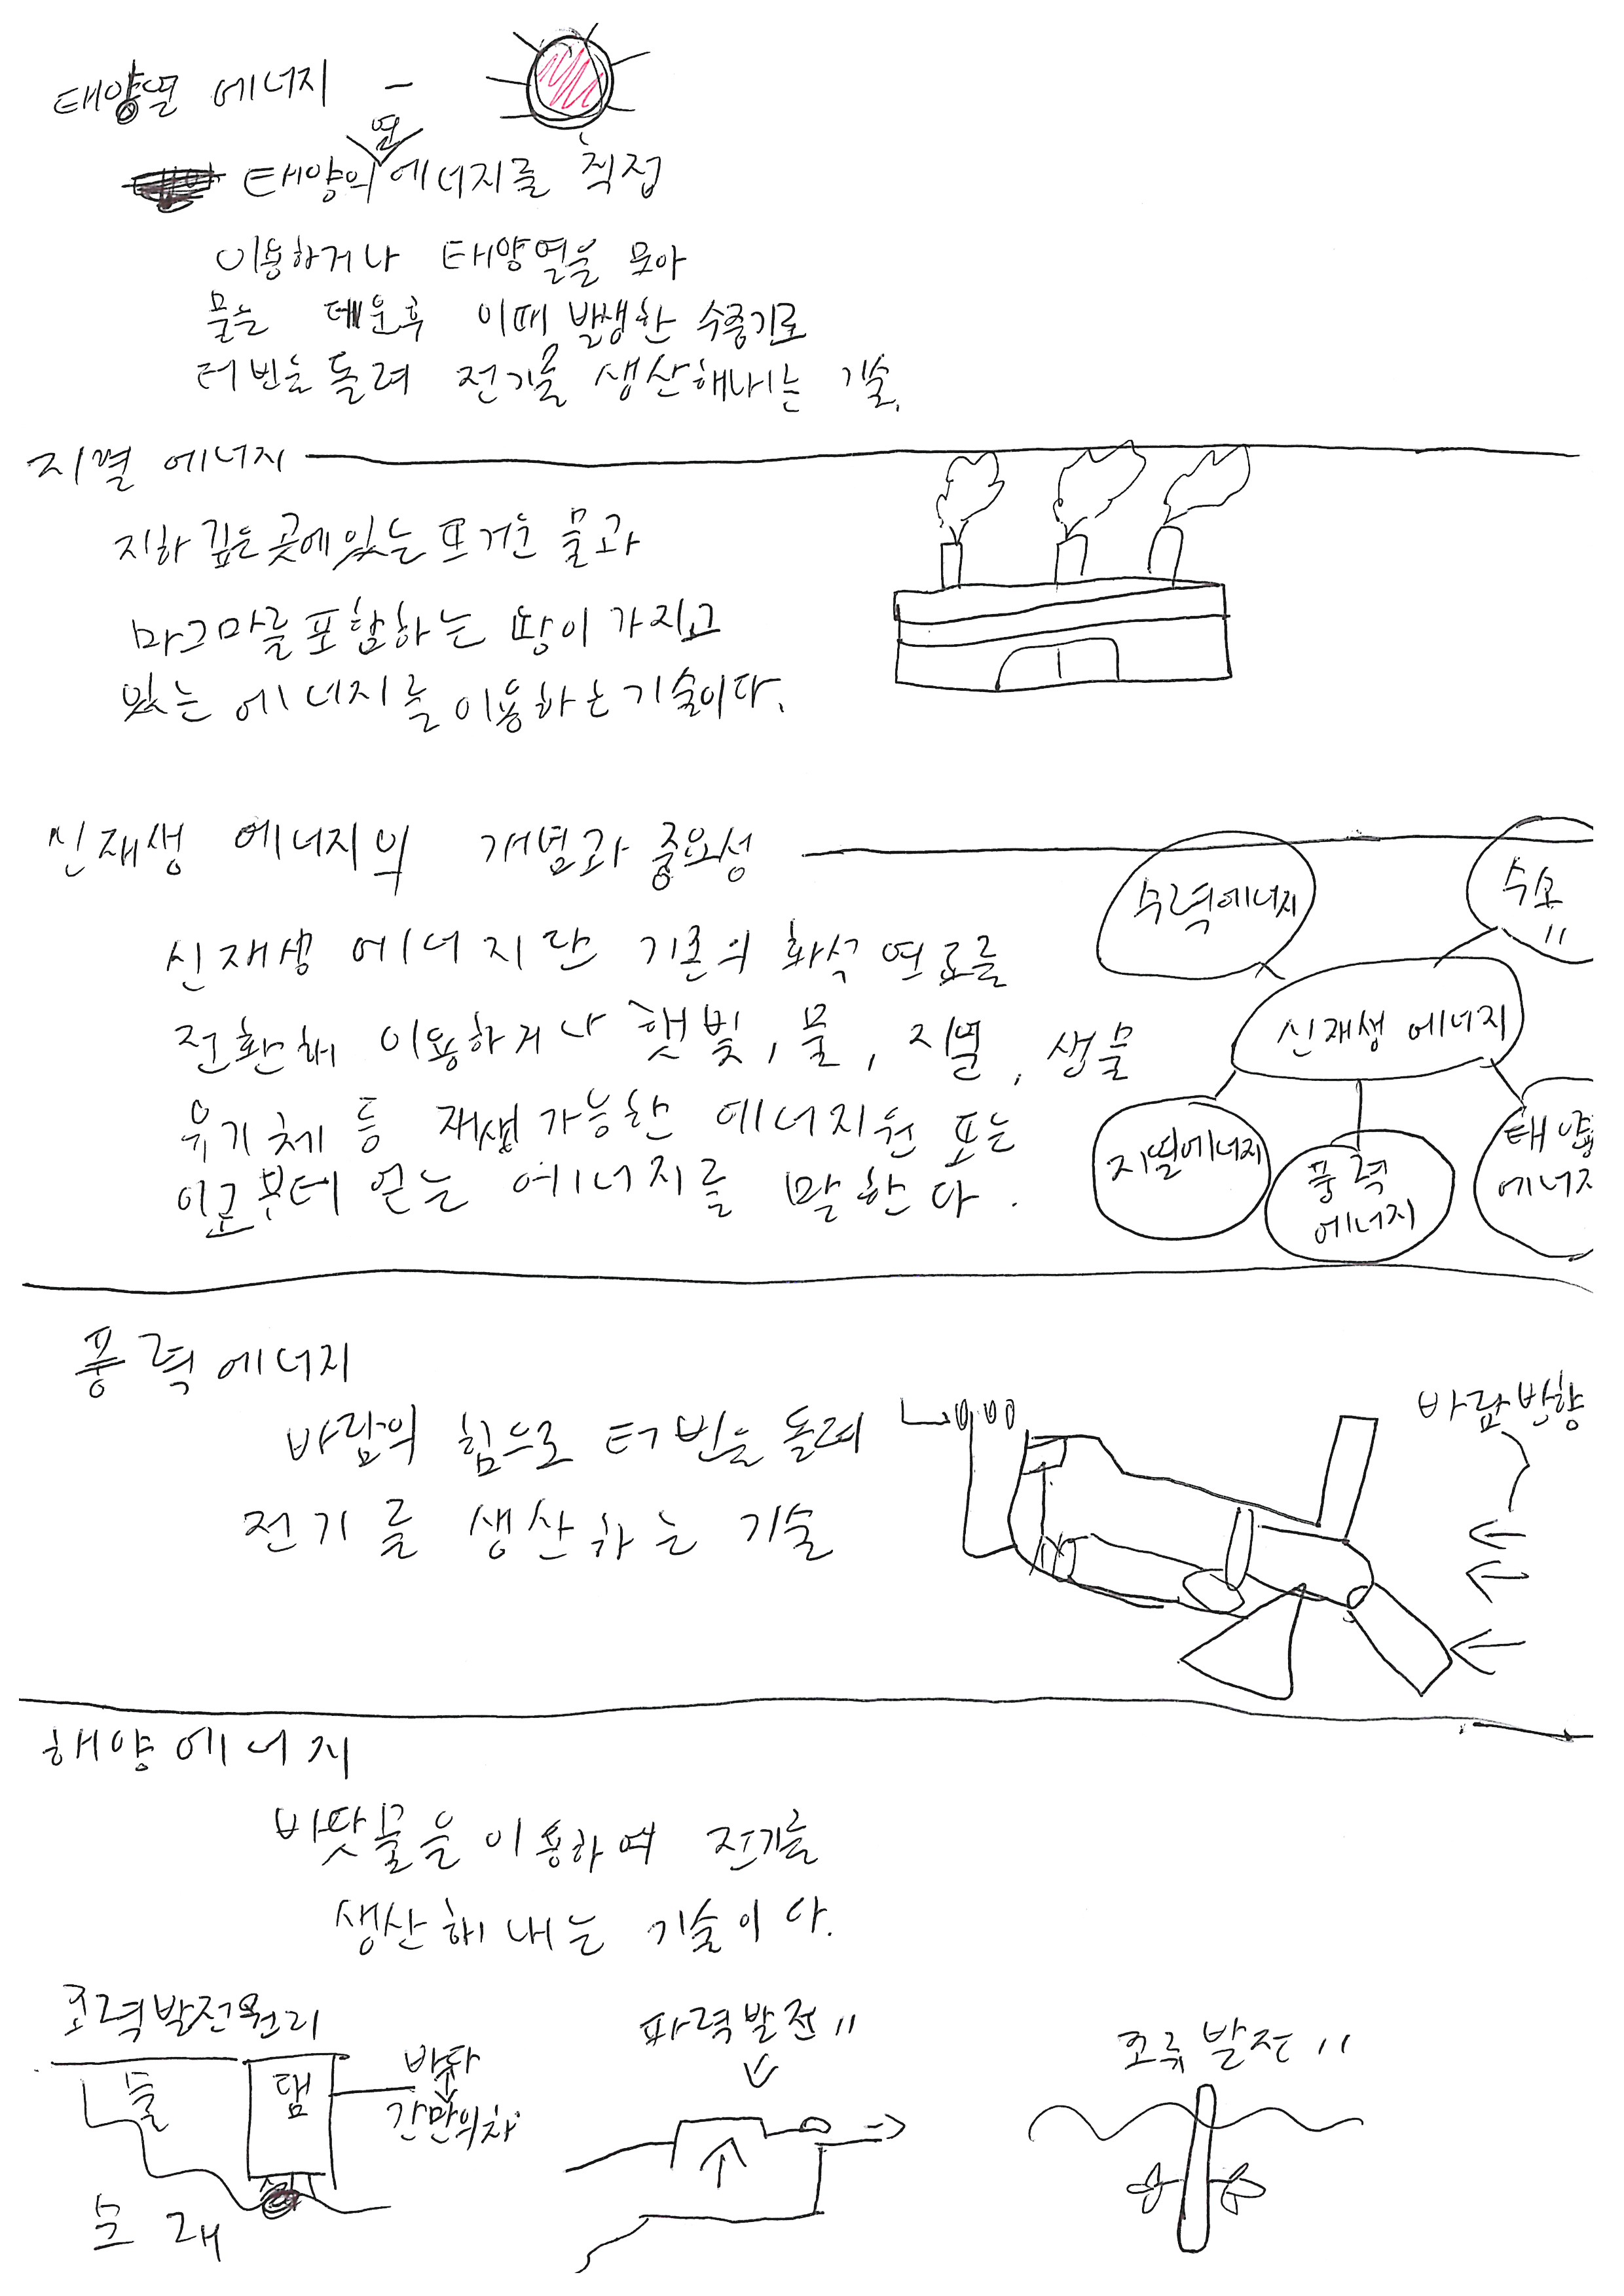 태양열 에너지 -
태양의 열 에너지를 직접
이용하거나 태양열을 모아
물을 데운후 이때 발생한 수증기로
터빈을 돌려 전기를 생산해내는 기술.
지열 에너지
지하 깊은 곳에 있는 뜨거운 물과
마그마를 포함하는 땅이 가지고
있는 에너지를 이용하는 기술이다.
신재생 에너지의 개념과 중요성
신재생 에너지란 기존의 화석 연료를
전환해 이용하거나 햇빛, 물, 지열, 생물
유기체 등 재생가능한 에너지원 또는
이로부터 얻는 에너지를 말한다.
수력에너지
수소
〃
신재생 에너지
지열에너지
풍력
에너지
태양
에너지
풍력에너지
바람의 힘으로 터빈을 돌려
전기를 생산하는 기술
바람방향
해양에너지
바닷물을 이용하여 전기를
생산해 내는 기술이다.
조력발전원리
물
댐
바다
간만의차
모래
파력발전 〃
조류발전 〃